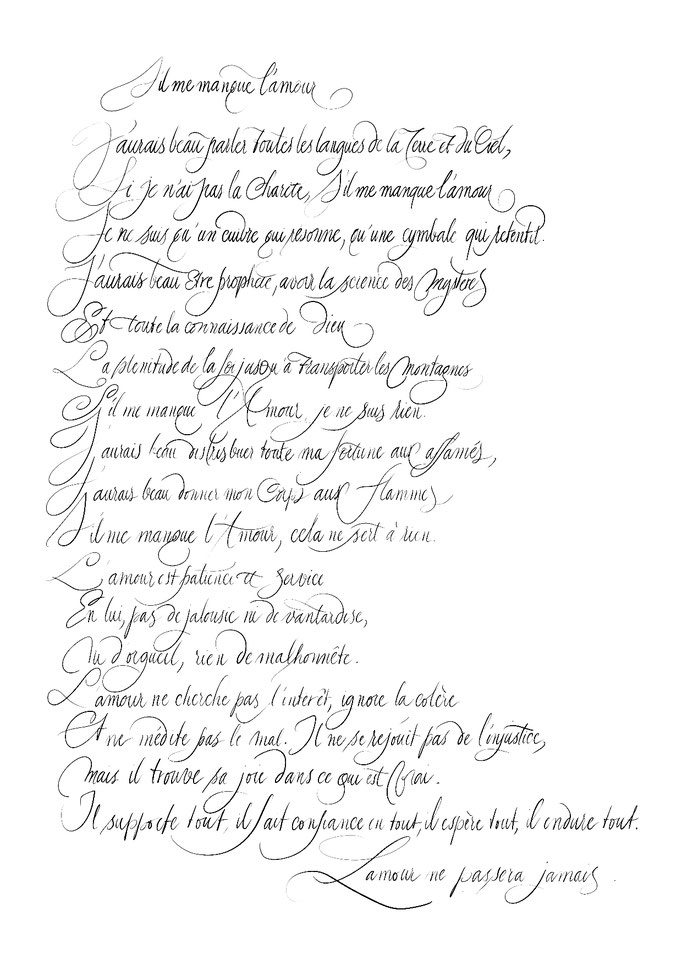 S'il me manque l'amour
J'aurais beau parler toutes les langues de la Terre et du Ciel,
Si je n'ai pas la Charité, S'il me manque l'amour
Je ne suis qu'un cuivre qui résonne, qu'une cymbale qui retentit.
J'aurais beau Être prophète, avoir la science des Mystères
Et toute la connaissance de Dieu
La plénitude de la foi jusqu'à transporter les Montagnes
S'il me manque l'Amour, je ne suis rien.
J'aurais beau distribuer toute ma fortune aux affamés,
J'aurais beau donner mon Corps aux flammes
S'il me manque l'Amour, cela ne sert à rien.
L'amour est patience et Service
En lui, pas de jalousie ni de vantardise,
Ni d'orgueil, rien de malhonnête.
L'amour ne cherche pas l'interêt, ignore la colère
Et ne médite pas le mal. Il ne se réjouit pas de l'injustice,
Mais il trouve sa joie dans ce qui est Vrai.
Il supporte tout, il fait confiance en tout, il espère tout, il endure tout.
L'amour ne passera jamais.